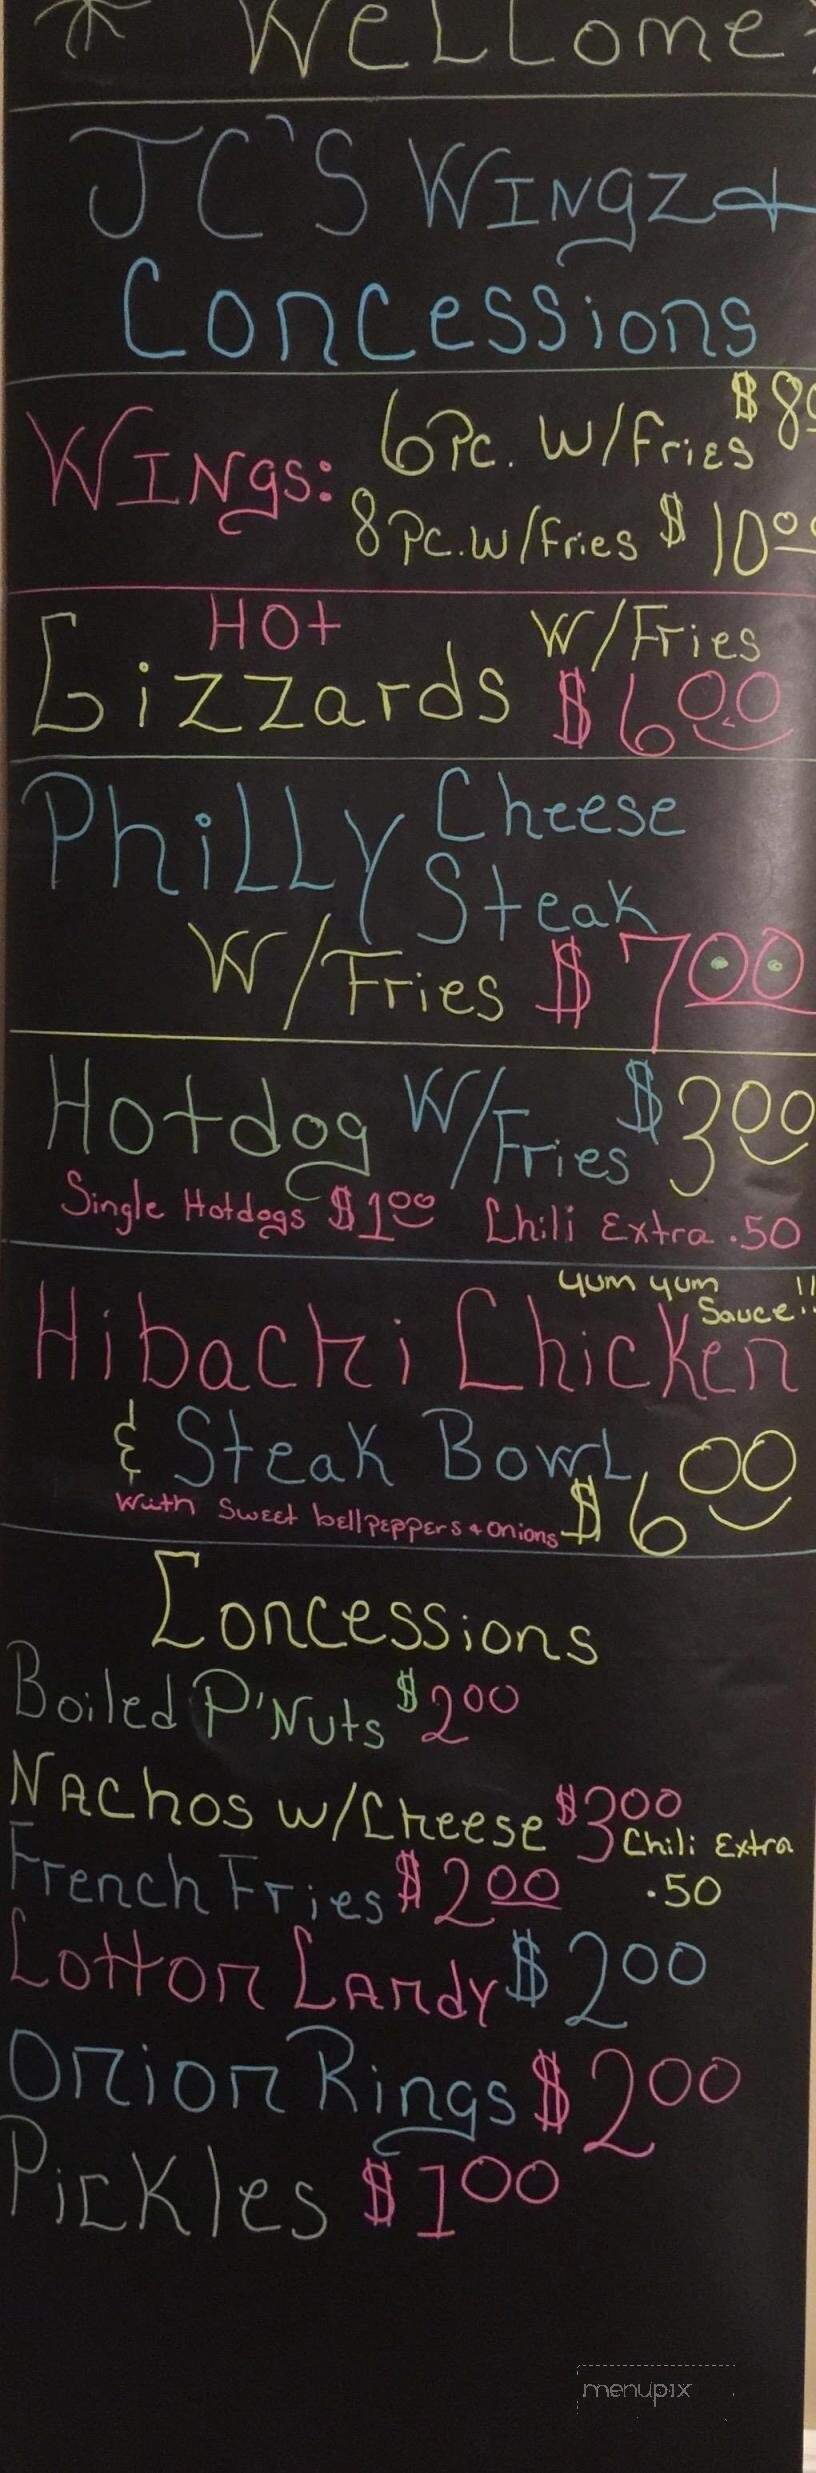 Welcome
JC'S Wingz &
Concessions
Wings: 6Pc. W/Fries $8
8Pc. w/fries $10.00
Hot
Gizzards W/Fries
$6.00
Philly Cheese
Steak
W/Fries $7.00
Hotdog W/Fries $3.00
Single Hotdogs $1.00 Chili Extra .50
Yum yum
Sauce!!
Hibachi Chicken
& Steak Bowl
with sweet bellpeppers & onions $6.00
Concessions
Boiled P'Nuts $2.00
Nachos w/Cheese $3.00
Chili Extra
.50
French Fries $2.00
Cotton Candy $2.00
Onion Rings $2.00
Pickles $1.00
menupix